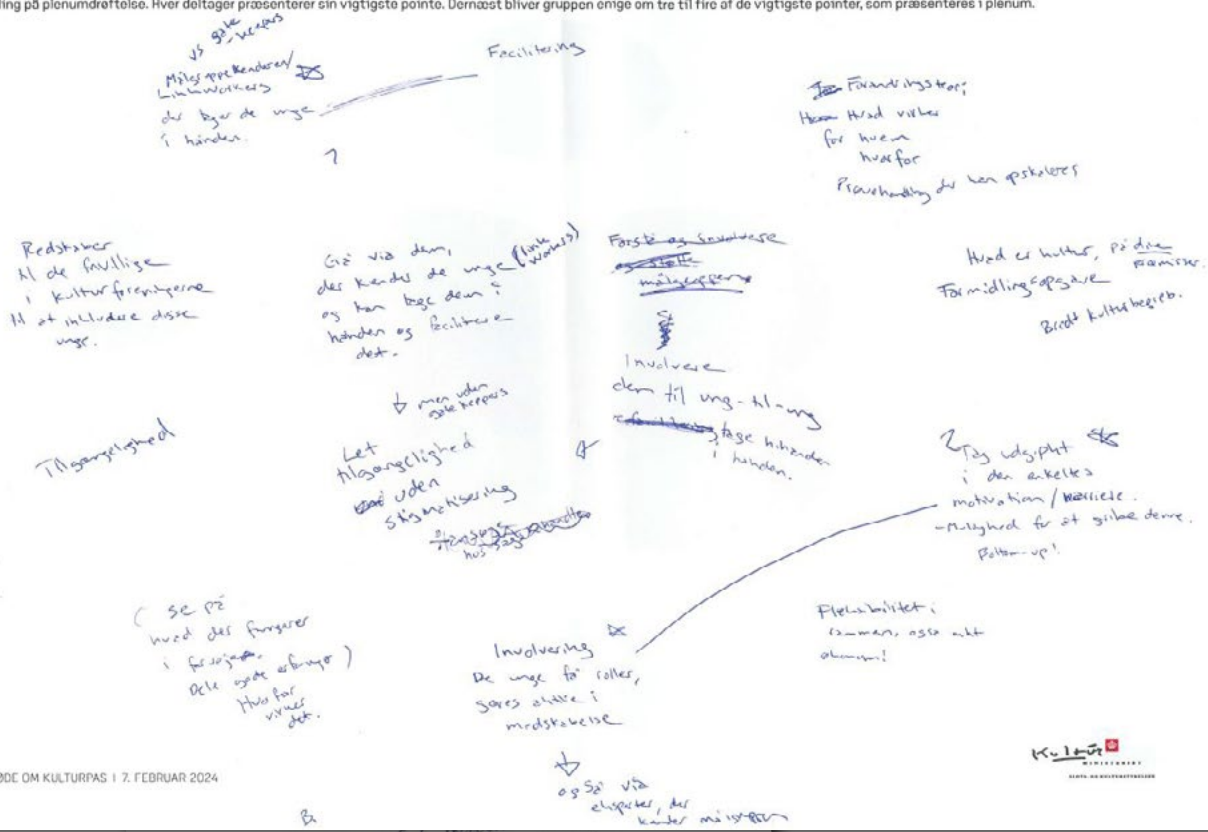 ling på plenumdrøftelse. Hver deltager præsenterer sin vigtigste pointe. Dernæst bliver gruppen enige om tre til fire af de vigtigste pointer, som præsenteres i plenum.
vs gate keepers
Målgruppekenderen/
Linkworkers
der tager de unge
i hånden.
Facilitering
Forandringsteori
Hvad virker
for hvem
hvorfor
Prøvehandling der kan opskaleres
Redskaber
til de frivillige
i kulturforeningerne
til at inkludere disse
unge.
Gå via dem,
der kender de unge (link workers)
og kan tage dem i
hånden og facilitere
det.
men uden
gatekeepers
Let
tilgængelighed
uden
stigmatisering
Forstå og involvere
og støtte
målgruppen
Involvere
dem til ung-til-ung
tage hinanden
i hånden.
Hvad er kultur, på dine
præmisser.
Formidlingsopgave
Bredt kulturbegreb.
Tilgængelighed
Tag udgspkt
i den enkeltes
motivation / barriere.
- Mulighed for at gribe denne.
Bottom-up!
(se på
hvad der fungerer
i forvejen.
Dele gode erfaringer)
Hvorfor
virker
det.
Involvering
De unge få roller,
gøres aktive i
medskabelse
også via
eksperter, der
kender målgruppen
Fleksibilitet i
rammen, også
økonomi!
ØDE OM KULTURPAS | 7. FEBRUAR 2024
Kultur
MINISTERIET
SLOTS- OG KULTURSTYRELSEN